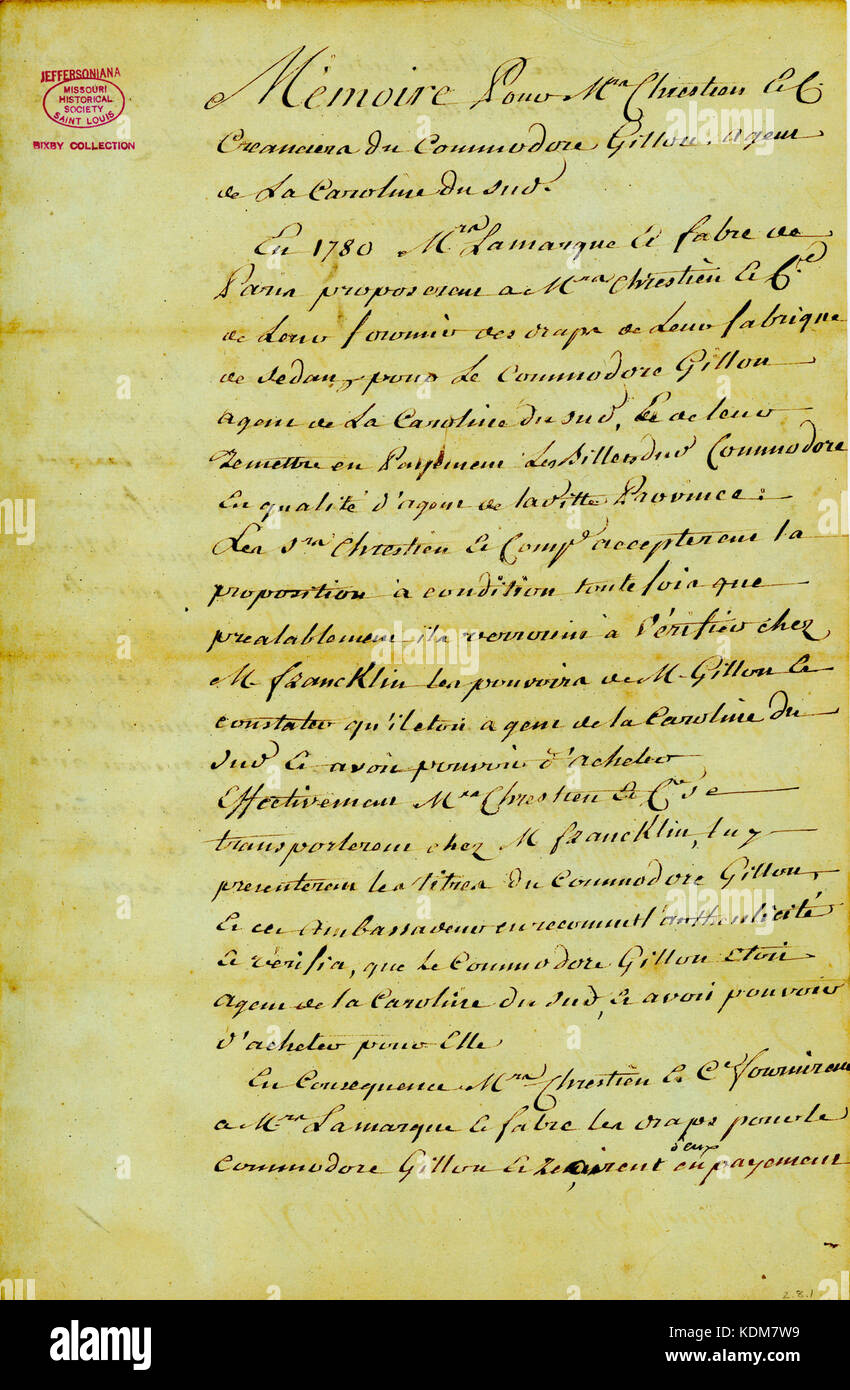 JEFFERSONIANA
MISSOURI
HISTORICAL
SOCIETY
SAINT LOUIS
BIXBY COLLECTION
Mémoire Pour Mrs Chrestien & C.
Creanciers du Commodore Gillon, agent
de La Caroline du sud.
En 1780 Mrs Lamarque & fabre de
Paris proposerent a Mrs Chrestien & Cie
de Leur fournir des draps de Leur fabrique
de sedan, pour Le Commodore Gillon
agent de La Caroline du sud, & de leur
remettre en Payement Les Billets dud Commodore
En qualité d'agent de laditte Province:
Les Srs Chrestien & Compe accepterent la
proposition à condition toute fois que
prealablement ils verroint à Vérifier chez
M francklin les pouvoirs de M. Gillon &
constater qu'il etoit agent de la Caroline du
sud & avoit pouvoir d'acheter
Effectivement Mrs Chrestien & Cie se
transporterent chez M francklin, luy
presenterent les titres du Commodore Gillon,
& cet Ambassadeur en reconnut l'authenticité
& verifia, que Le Commodore Gillon Etoit
agent de la Caroline du sud, & avoit pouvoir
d'acheter pour Elle
En Consequence Mrs Chrestien & Ce fournirent
a Mrs Lamarque & fabre les draps pour le
Commodore Gillon & reçurent d'eux en payement
2.8.1
alamy
Image ID: KDM7W9
www.alamy.com